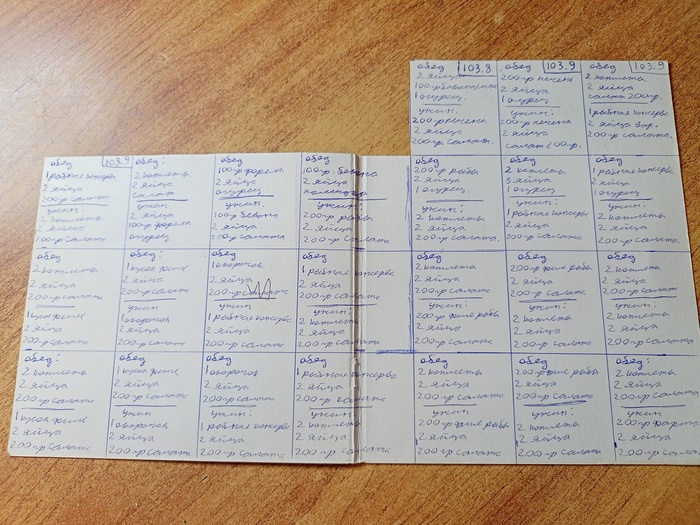 обед 103.8
2 яйца
1 огурец
ужин:
200гр печени
2 яйца
200гр салат.
обед 103.9
200гр печени
2 яйца
1 огурец
ужин:
200гр печень
2 яйца
салат 200гр.
обед 103.9
2 котлета
2 яйца
салат 200гр.
1 рыбная консерва
2 яйца
200гр салата.
обед 103.9
1 рыбная консерва
2 яйца
200гр салата
ужин:
2 котлета
2 яйца
200гр салата
обед:
2 котлета
2 яйца
салата
ужин:
2 яйца
100гр форели
огурец
обед
100гр форель
2 яйца
огурец
ужин:
2 яйца
100гр бекона
200гр салата
обед
100гр. бекона
2 яйца
помидор
ужин:
200гр рыбы
2 яйца
200гр салата
обед
200гр рыбы
2 яйца
1 огурец.
ужин:
2 котлеты
2 яйца
200гр салата
обед
2 котлета
3 яйца
1 огурец
ужин:
1 рыбная консерва
2 яйца
200гр салата
обед
1 рыбная консерва
2 яйца
1 огурец
ужин:
2 котлеты
2 яйца
200гр салата
обед
2 котлеты
2 яйца
200гр салата
ужин:
1 кусок филе
2 яйца
200гр салата
обед:
1 кусок филе
2 яйца
200гр салата
ужин
1 окорочок
2 яйца
200гр салата
обед
1 окорочок
2 яйца
200гр салата
ужин
1 рыбная консерва
2 яйца
200гр салата
обед
1 рыбная консерва
2 яйца
200гр салата
ужин:
2 котлеты
2 яйца
200гр салата
обед
2 котлеты
2 яйца
200гр салата
ужин:
200гр филе рыбы
2 яйца
200гр салата
обед
200гр филе рыбы
2 яйца
200гр салата
ужин:
2 котлеты
2 яйца
200гр салата
обед
2 котлеты
2 яйца
200гр салата
ужин:
2 котлеты
2 яйца
200гр салата
обед:
2 котлеты
2 яйца
200гр салата
ужин:
1 кусок филе
2 яйца
200гр салата
обед:
1 кусок филе
2 яйца
200гр салата
ужин
1 окорочок
2 яйца
200гр салата
обед
1 окорочок
2 яйца
200гр салата
ужин:
1 рыбная консерва
2 яйца
200гр салата
обед
1 рыбная консерва
2 яйца
200гр салата
ужин
2 котлеты
2 яйца
200гр салата
обед
2 котлеты
2 яйца
200гр салата
ужин
200гр филе рыбы
2 яйца
200гр салата
обед
200гр филе рыбы
2 яйца
200гр салата
ужин:
2 котлеты
2 яйца
200гр салата
обед:
2 котлеты
2 яйца
200гр салата
ужин
2 яйца
200гр салата